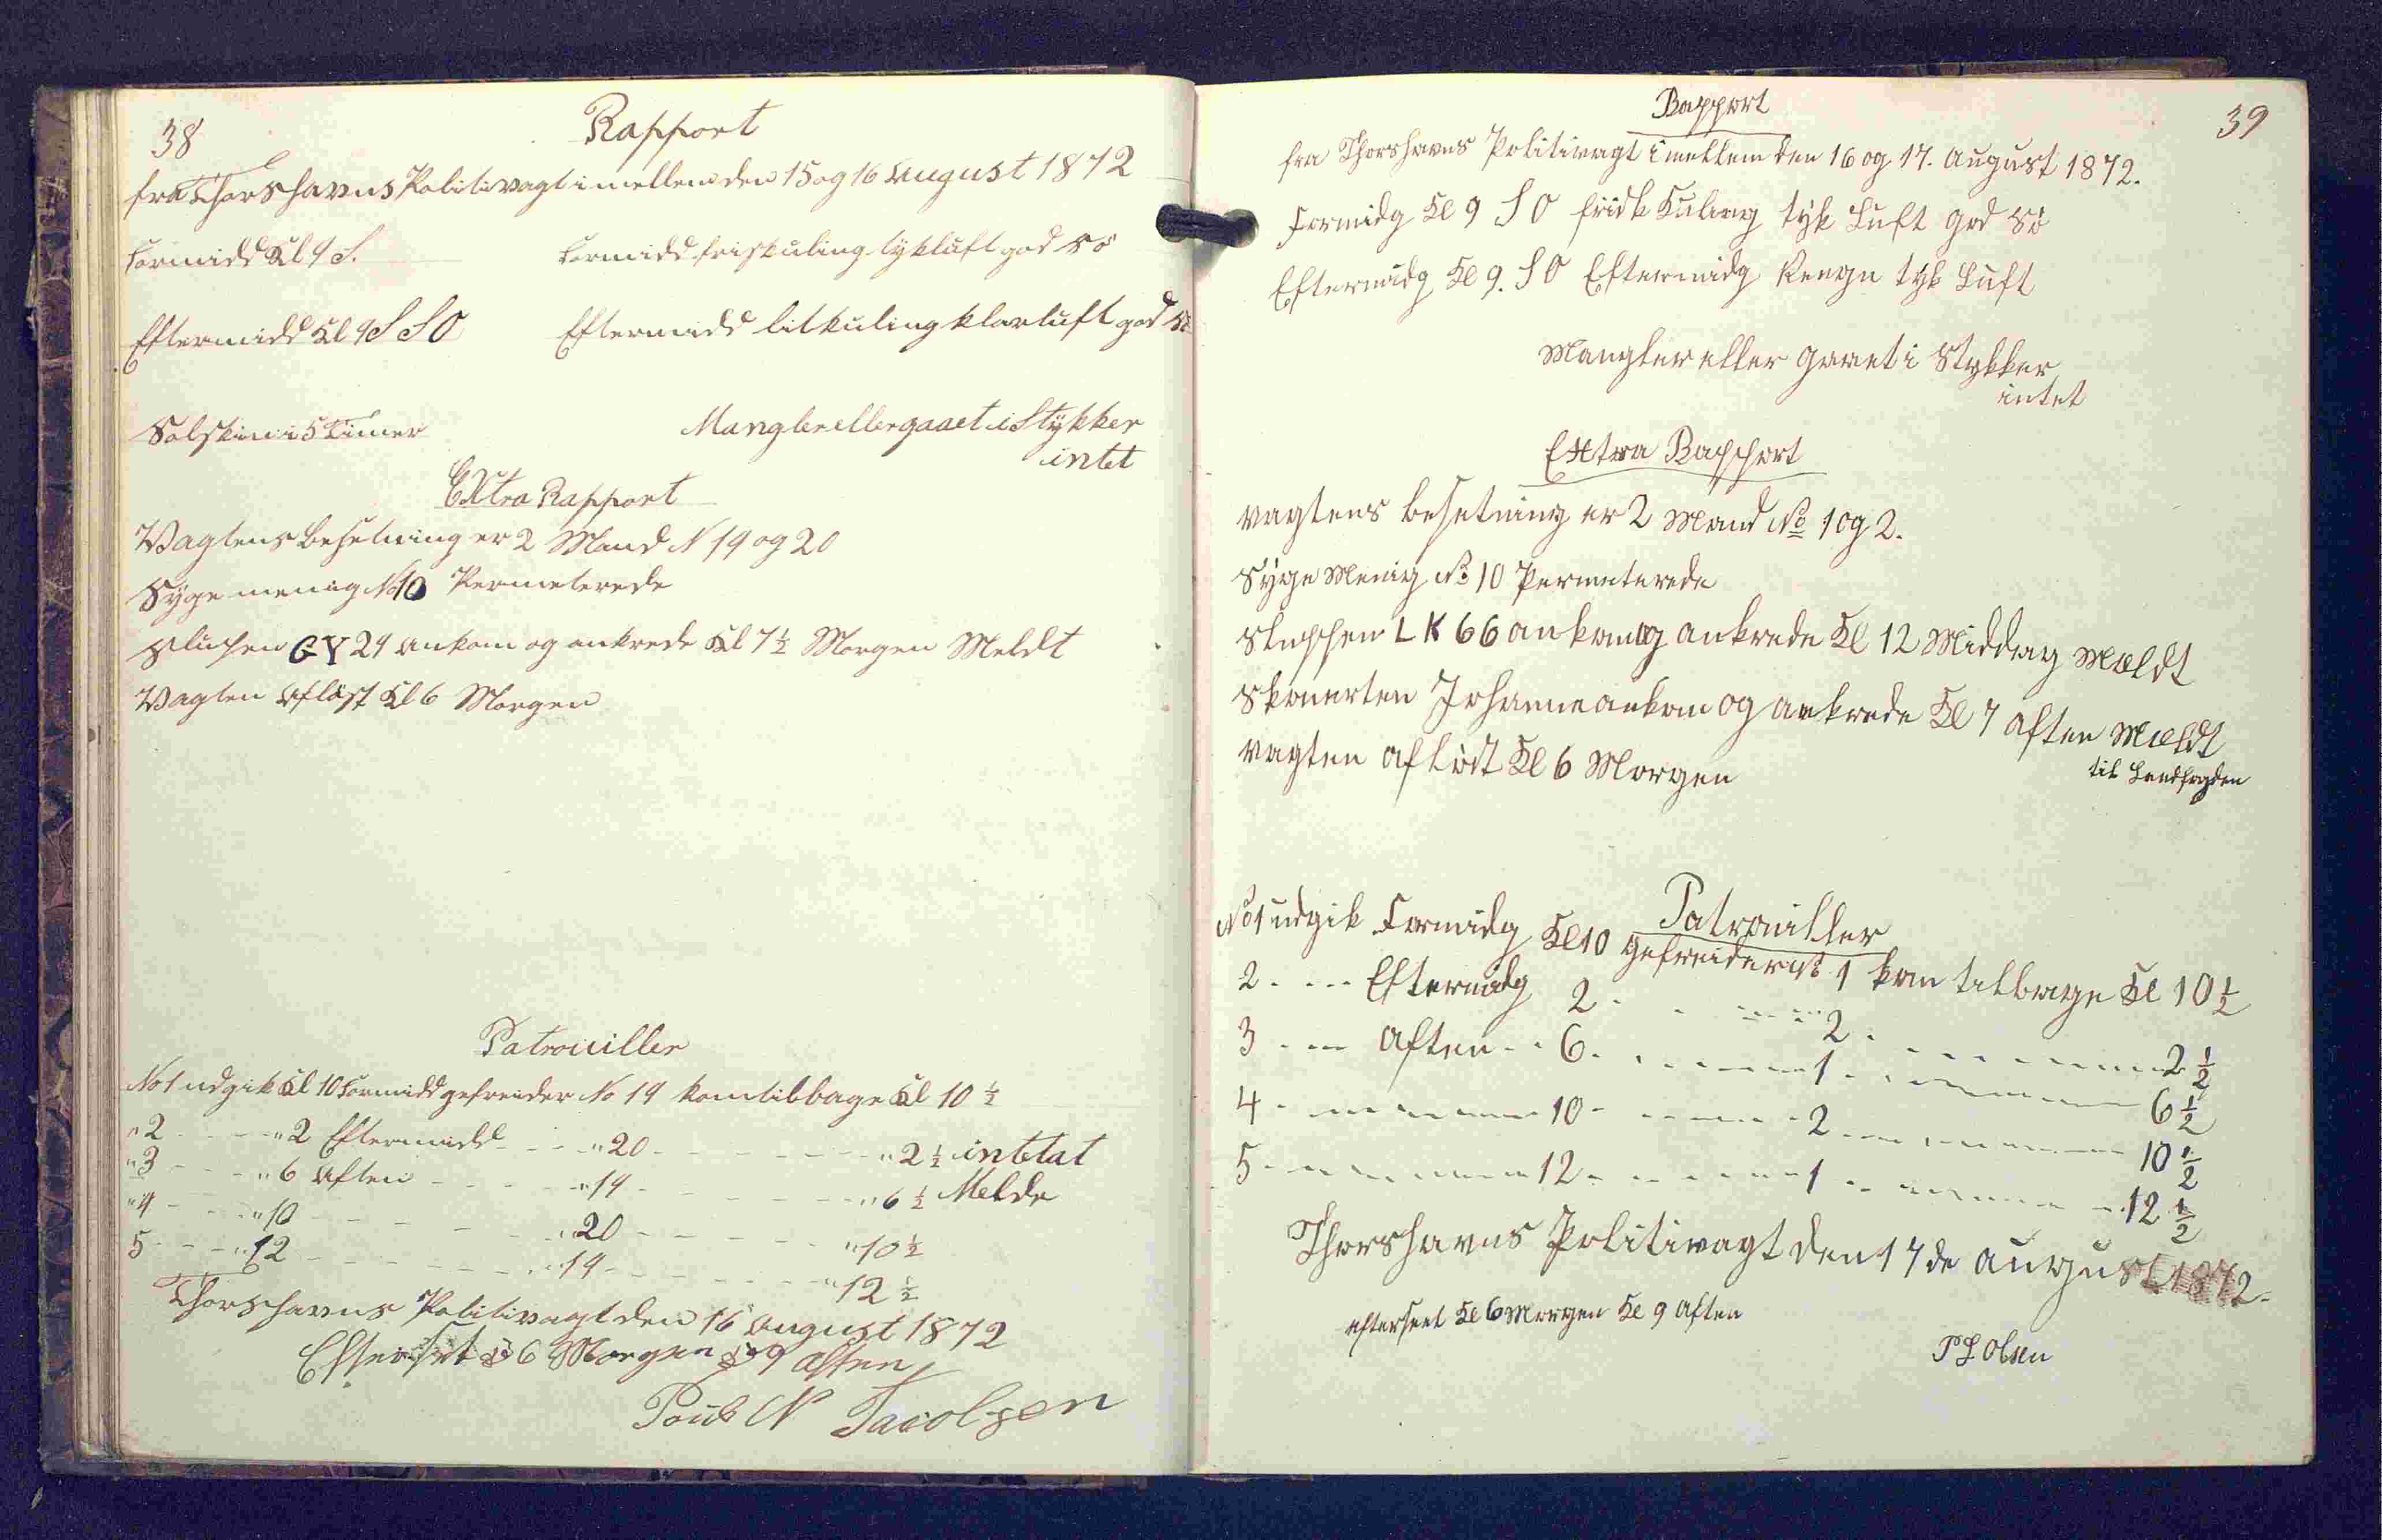 38
Rapport
fra Thorshavns Politivagt imellem den 15 og 16 August 1872
Formidd Kl 9 S. Formidd friskuling tykluft god Sö
Eftermidd Kl 9 S S O Eftermidd litkuling klarluft god Sö
Solskin i 5 Timer Mangler eller gaaet i Stykker
intet
EXtra Rapport
Vagtens Besetning er 2 Mand N 19 og 20
Syge menig No 10 Permeterede
Slupen GY 24 ankom og ankrede Kl 7 ½ Morgen Meldt
Vagten Aflöst Kl 6 Morgen
Patrouiller
No 1 udgik Kl 10 Formidd gefreider No 19 kom tilbage Kl 10 ½
" 2 - - - " 2 Eftermidd - - " 20 - - - " 2 ½ intet at
" 3 - - - " 6 Aften - - - " 19 - - - " 6 ½ Melde
" 4 - - - " 10 - - - " 20 - - - " 10 ½
5 - - - " 12 - - - " 19 - - - " 12 ½
Thorshavns Politivagt den 16 August 1872
Efterset Kl 6 Morgen Kl 9 Aften
Poul N Jacobsen
39
Rapport
fra Thorshavns Politivagt imellem den 16 og 17. August 1872.
Formidg Kl 9 S O frisk Kuling tyk Luft god Sö
Eftermidg Kl 9. S O Eftermidg Reegn tyk Luft
Mangler eller gaaet i Stykker
intet
EXtra Rapport
Vagtens besetning er 2 Mand No 1 og 2.
Syge Menig No 10 Permeterede
Sluppen LK 66 ankom og ankrede Kl 12 Middag Meldt
Skonerten Johanne ankom og ankrede Kl 7 Aften Meldt
til Landfogden
Vagten aflöst Kl 6 Morgen
Patrouiller
No 1 udgik Formidg Kl 10 Gefreider No 1 kom tilbage Kl 10 ½
2 - - - Eftermidg 2 - - - 2 - - - 2 ½
3 - - - Aften - - 6 - - - 1 - - - 6 ½
4 - - - 10 - - - 2 - - - 10 ½
5 - - - 12 - - - 1 - - - 12 ½
Thorshavns Politivagt den 17 de August 1872.
efterseet Kl 6 Morgen Kl 9 Aften
P L Olsen